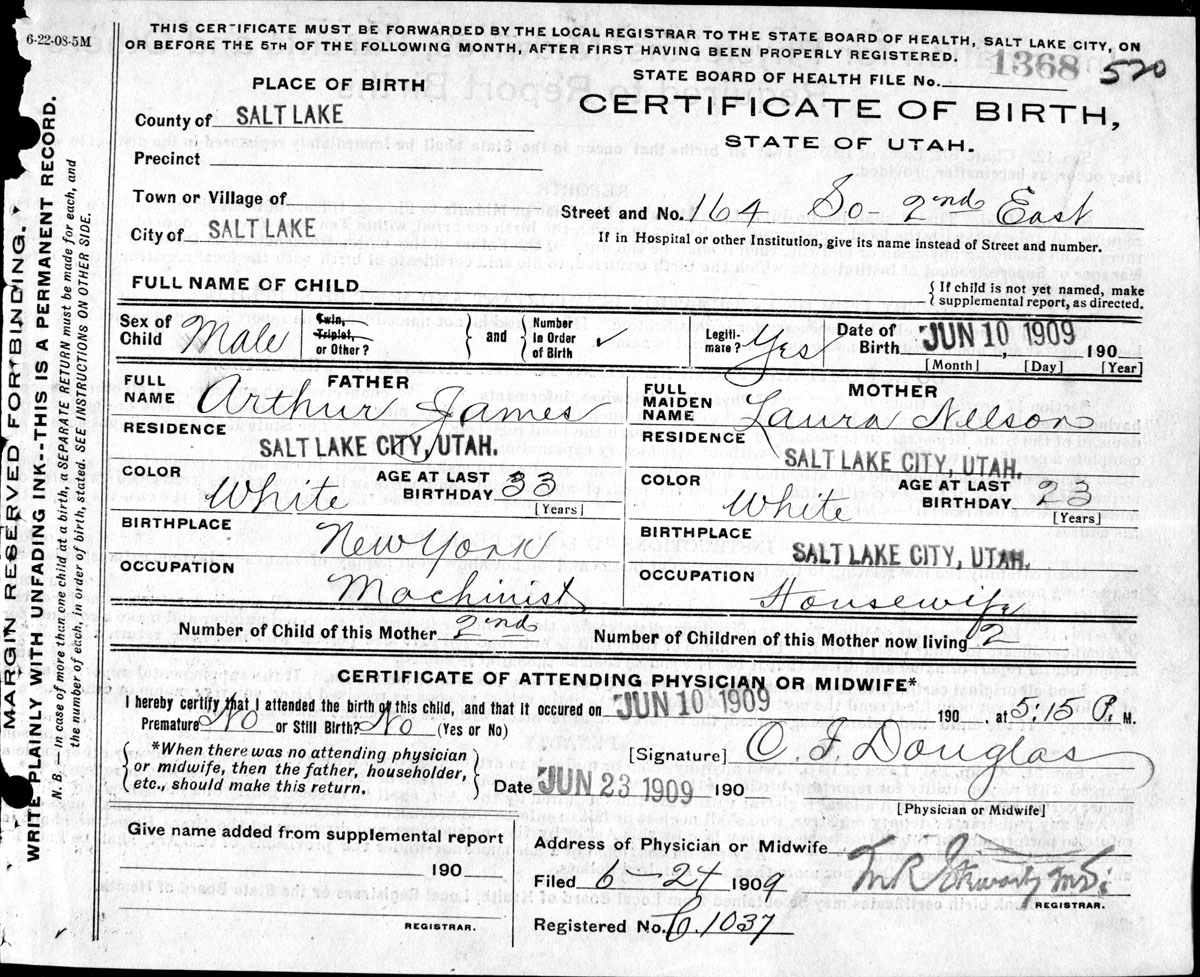 6-22-08-5M
THIS CERTIFICATE MUST BE FORWARDED BY THE LOCAL REGISTRAR TO THE STATE BOARD OF HEALTH, SALT LAKE CITY, ON
OR BEFORE THE 5TH OF THE FOLLOWING MONTH, AFTER FIRST HAVING BEEN PROPERLY REGISTERED.
STATE BOARD OF HEALTH FILE No. 1368 520
PLACE OF BIRTH
CERTIFICATE OF BIRTH,
STATE OF UTAH.
County of SALT LAKE
Precinct
Town or Village of
City of SALT LAKE
Street and No. 164 So- 2nd East
If in Hospital or other Institution, give its name instead of Street and number.
FULL NAME OF CHILD
{ If child is not yet named, make
supplemental report, as directed.
Sex of
Child Male
Twin,
Triplet,
or Other?
} and {
Number
In Order
of Birth
Legiti-
mate? Yes
Date of
Birth JUN 10 1909, 190
[Month] [Day] [Year]
FATHER
FULL
NAME Arthur James
RESIDENCE
SALT LAKE CITY, UTAH.
COLOR
White
AGE AT LAST
BIRTHDAY 33
[Years]
BIRTHPLACE
New York
OCCUPATION
Machinist
MOTHER
FULL
MAIDEN
NAME Laura Nelson
RESIDENCE
SALT LAKE CITY, UTAH.
COLOR
White
AGE AT LAST
BIRTHDAY 23
[Years]
BIRTHPLACE
SALT LAKE CITY, UTAH.
OCCUPATION
Housewife
Number of Child of this Mother 2nd
Number of Children of this Mother now living 2
CERTIFICATE OF ATTENDING PHYSICIAN OR MIDWIFE*
I hereby certify that I attended the birth of this child, and that it occured on JUN 10 1909 190 , at 5.15 P. M.
Premature No or Still Birth? No (Yes or No)
*When there was no attending physician
or midwife, then the father, householder,
etc., should make this return.
[Signature] C. F. Douglas
Date JUN 23 1909 190
[Physician or Midwife]
Give name added from supplemental report
190
REGISTRAR.
Address of Physician or Midwife
Filed 6 24 1909
M.D.
REGISTRAR.
Registered No. 1037
MARGIN RESERVED FOR BINDING.
WRITE PLAINLY WITH UNFADING INK--THIS IS A PERMANENT RECORD.
N. B.—In case of more then one child at a birth, a SEPARATE RETURN must be made for each, and
the number of each, in order of birth, stated. SEE INSTRUCTIONS ON OTHER SIDE.